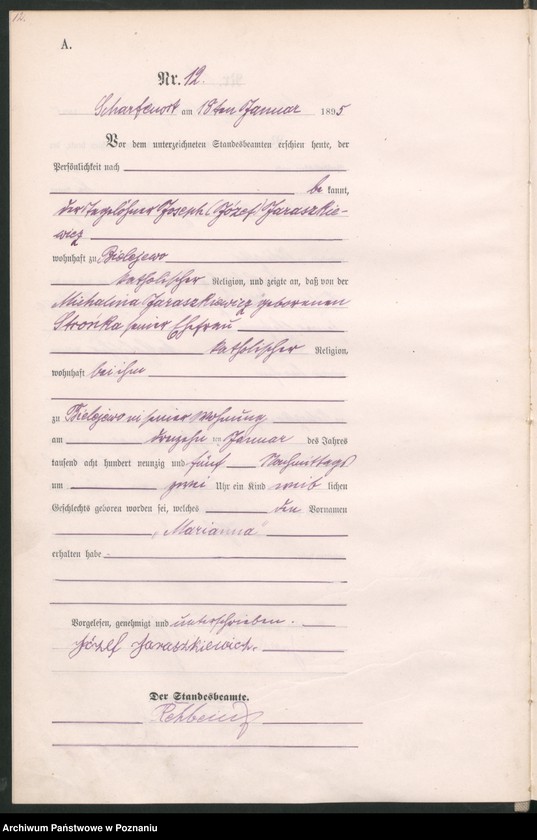 12.
A.
Nr. 12.
Scharfenort am 18ten Januar 1895
Vor dem unterzeichneten Standesbeamten erschien heute, der
Persönlichkeit nach
be kannt,
der Tagelöhner Joseph (Józef) Jaraszkie-
wicz
wohnhaft zu Bielejewo
katholischer Religion, und zeigte an, daß von der
Michalina Jaraszkiewicz geborenen
Strońka, seiner Ehefrau
katholischer Religion,
wohnhaft bei ihm
zu Bielejewo in seiner Wohnung
am ten Januar des Jahres
tausend acht hundert neunzig und fünf Nachmittags
um zwei Uhr ein Kind weib lichen
Geschlechts geboren worden sei, welches den Vornamen
„Marianna“
erhalten habe.
Vorgelesen, genehmigt und unterschrieben.
Józef Jaraszkiewicz.
Der Standesbeamte.
Archiwum Państwowe w Poznaniu